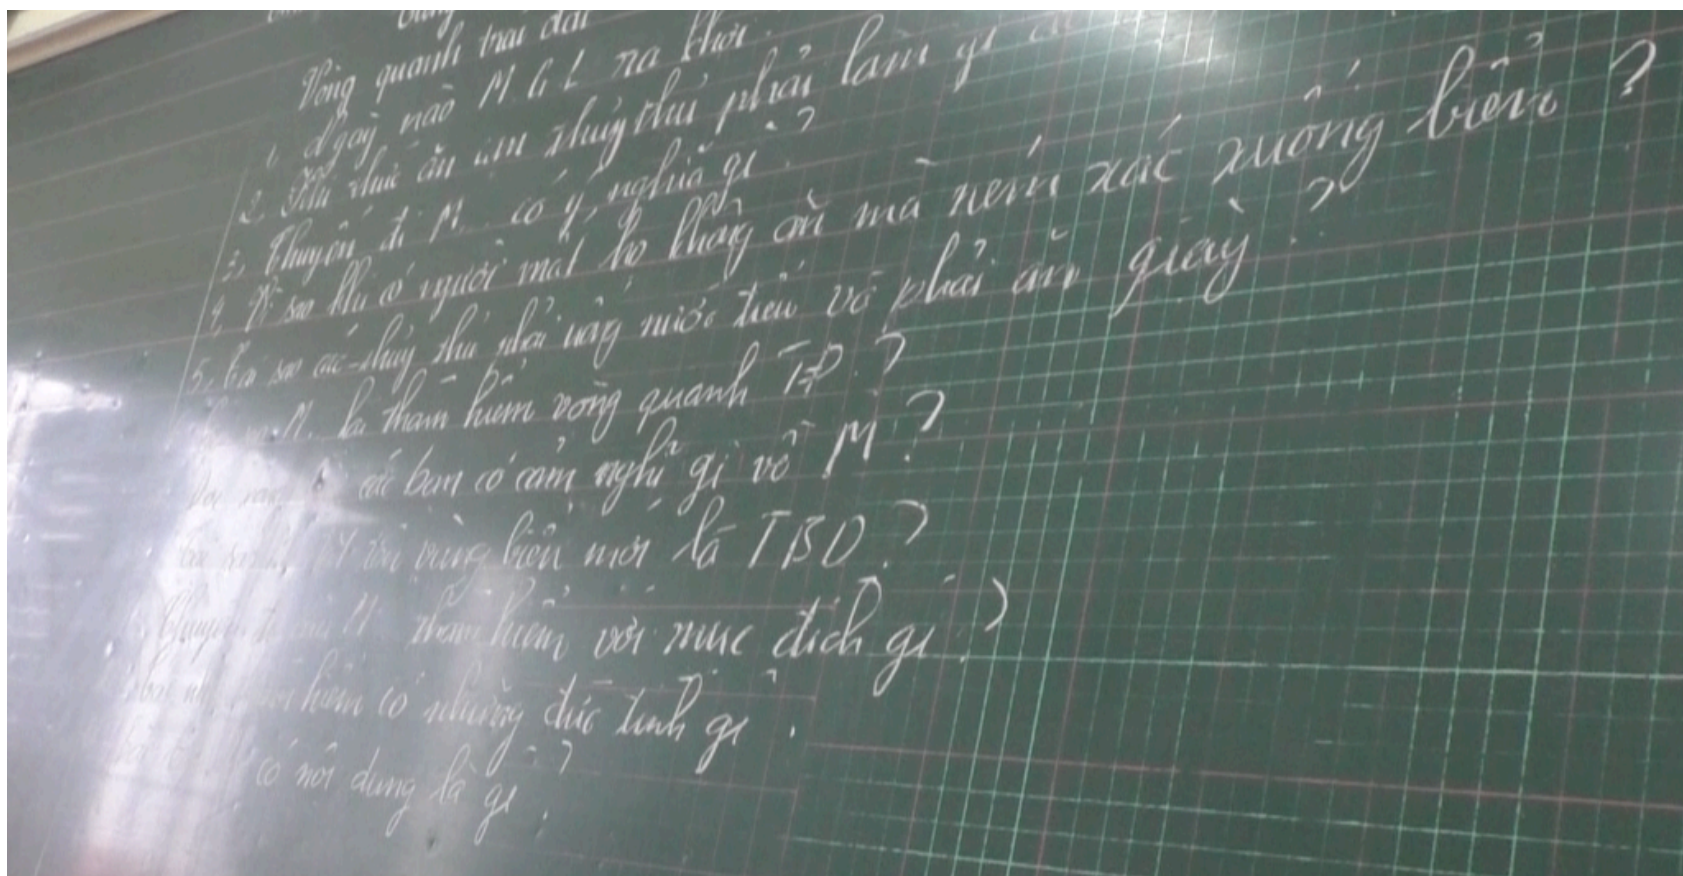 vòng quanh trái đất
1, Ngày nào M.G.L ra khơi.
2, Khi thức ăn cạn thủy thủ phải làm gì
3, Chuyến đi M. có ý nghĩa gì ?
4, Vì sao khi có người mất họ không ăn mà ném xác xuống biển ?
5, Tại sao các thủy thủ phải uống nước tiểu và phải ăn giày ?
M. lại thám hiểm vòng quanh TĐ ?
các bạn có cảm nghĩ gì về M ?
vùng biển mới là TBD ?
M. thám hiểm với mục đích gì ?
hiểm có những đức tính gì ?
có nội dung là gì ?